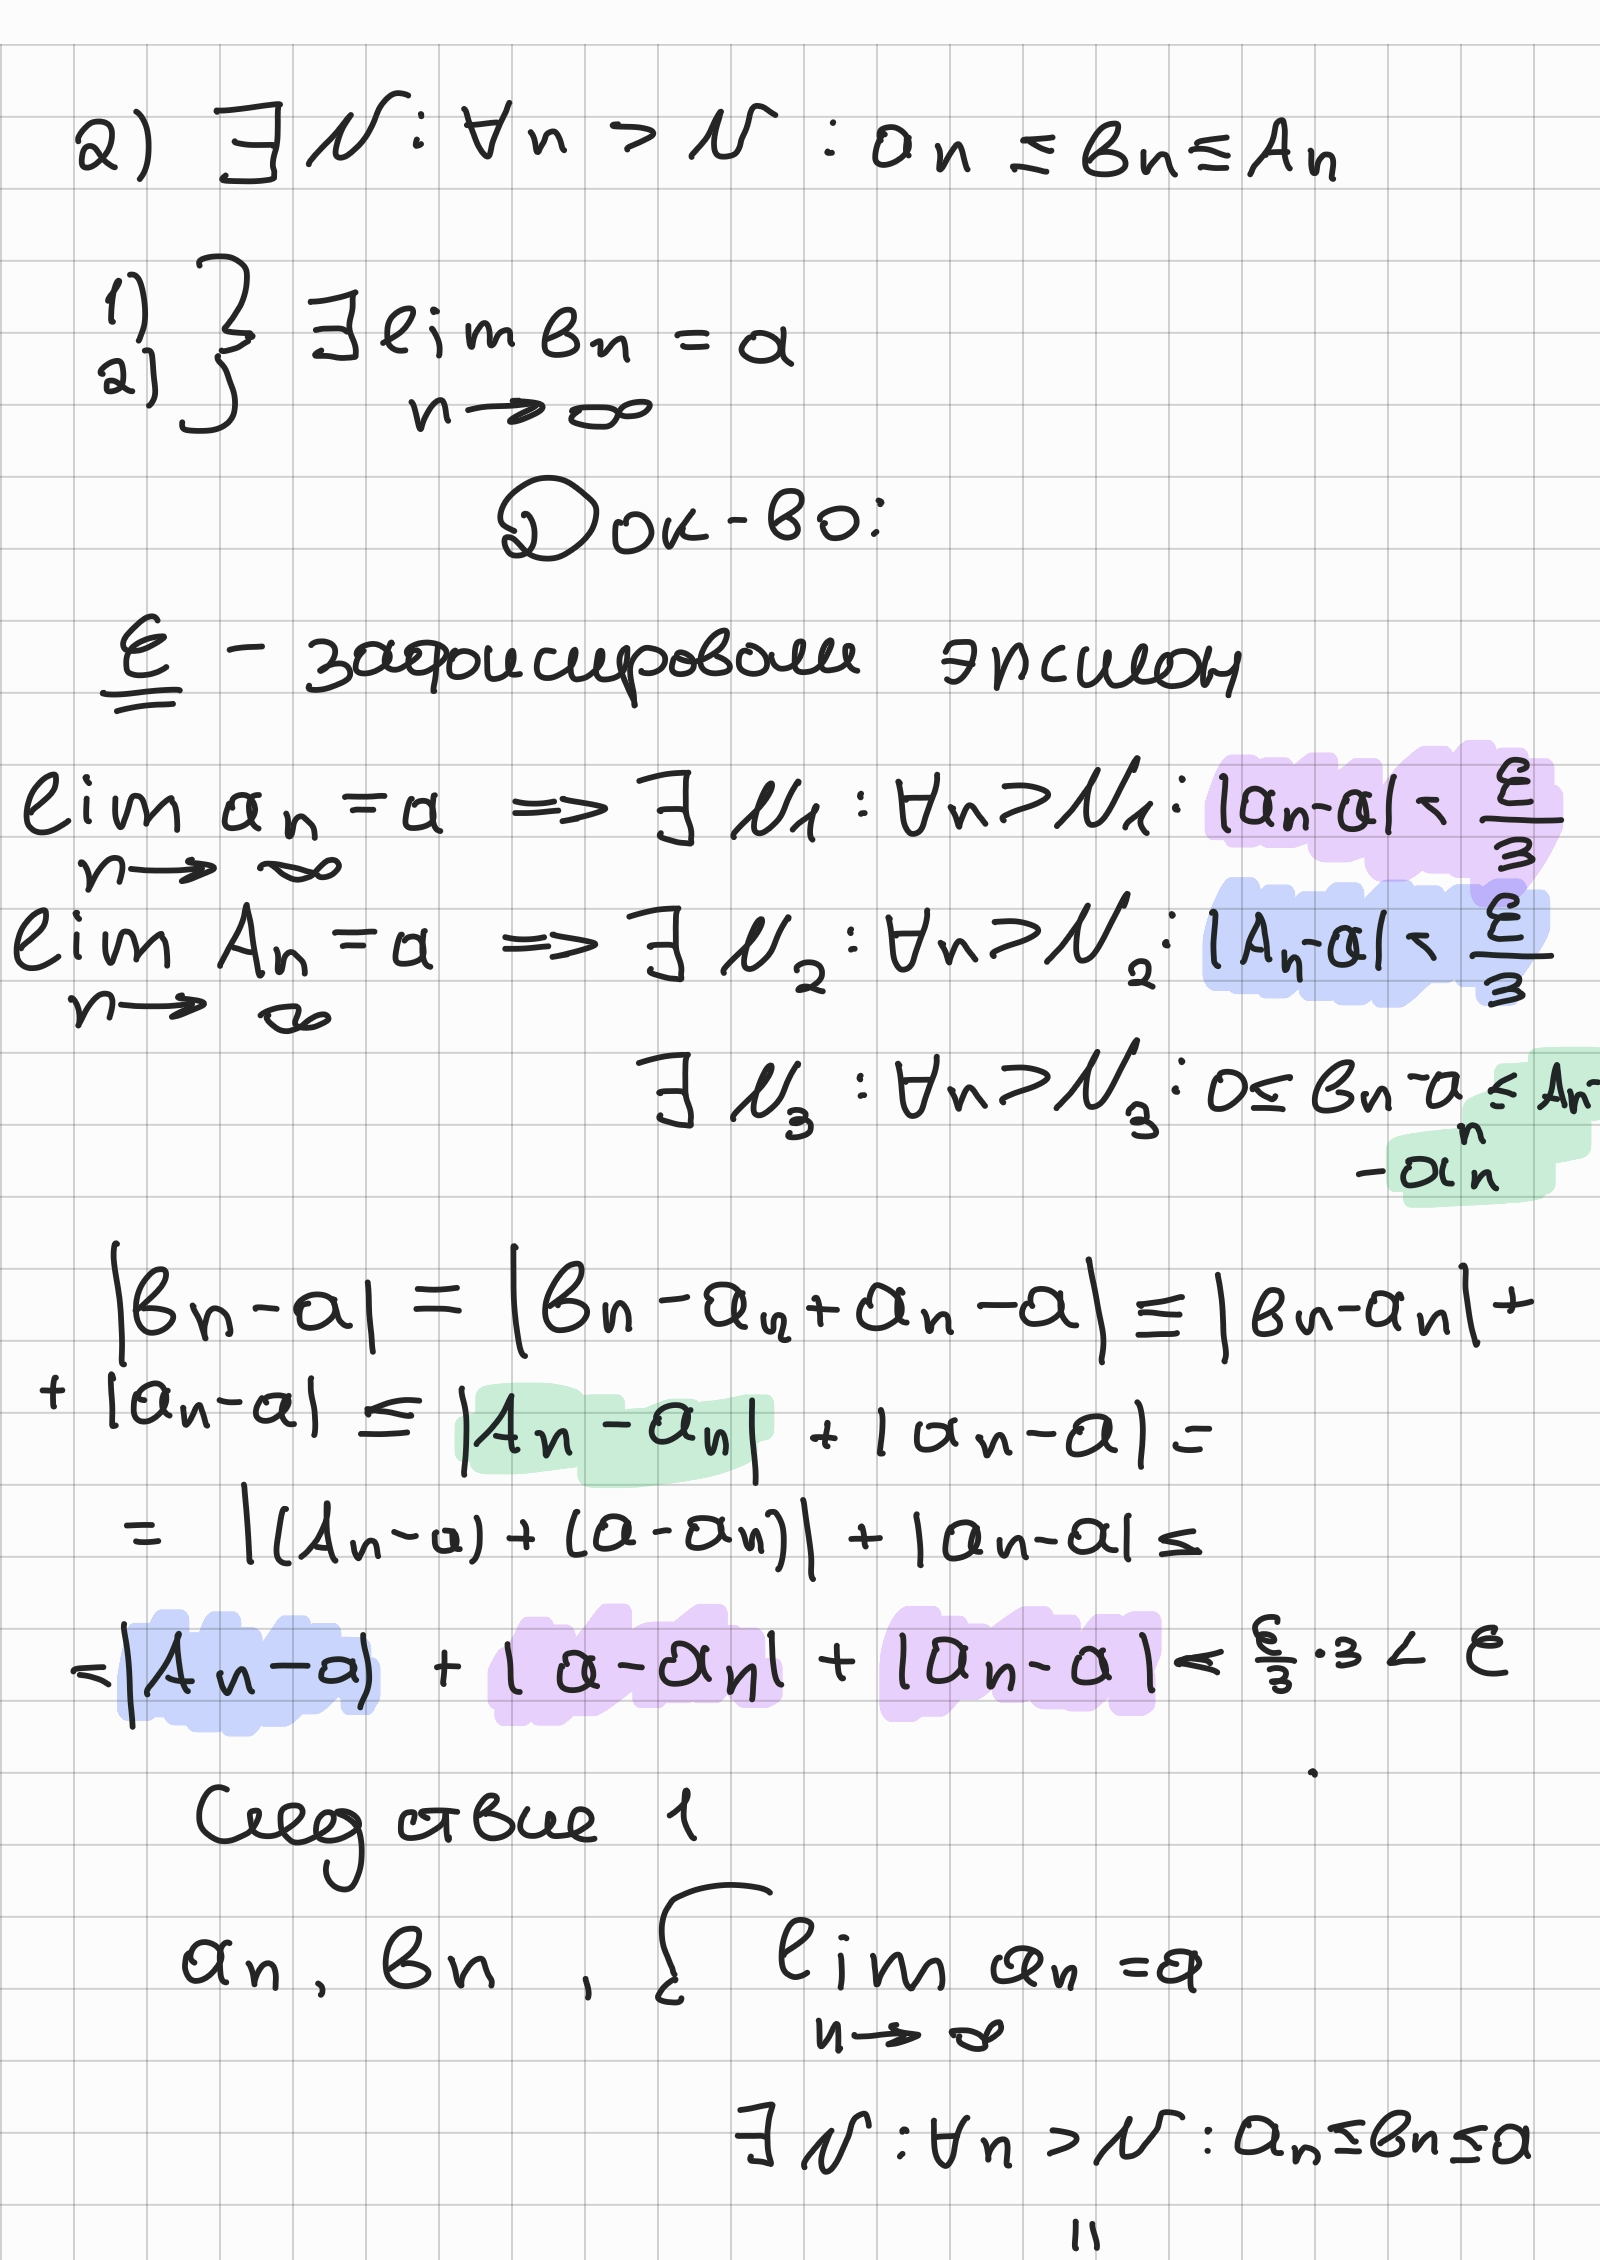 2) ∃ N : ∀n > N : an ≤ bn ≤ An
1)
2) } ∃ lim bn = a
n → ∞
Док-во:
ε – зафиксировали эпсилон
lim an = a ⇒ ∃ N1 : ∀n > N1 : |an - a| < ε/3
n → ∞
lim An = a ⇒ ∃ N2 : ∀n > N2 : |An - a| < ε/3
n → ∞
∃ N3 : ∀n > N3 : 0 ≤ bn - an ≤ An -
- an
|bn - a| = |bn - an + an - a| ≤ |bn - an| +
+ |an - a| ≤ |An - an| + |an - a| =
= |(An - a) + (a - an)| + |an - a| ≤
≤ |An - a| + |a - an| + |an - a| < ε/3 · 3 < ε
Следствие 1
an, bn, { lim an = a
n → ∞
∃ N : ∀n > N : an ≤ bn ≤ a